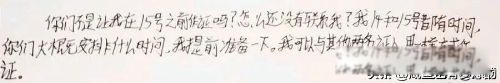 你们不是让我在15号之前作证吗?怎么还没有联系我?我什和15号都有时间,
你们大概元安排什么时间,我提前准备一下。我可以与其他两名证人
证。